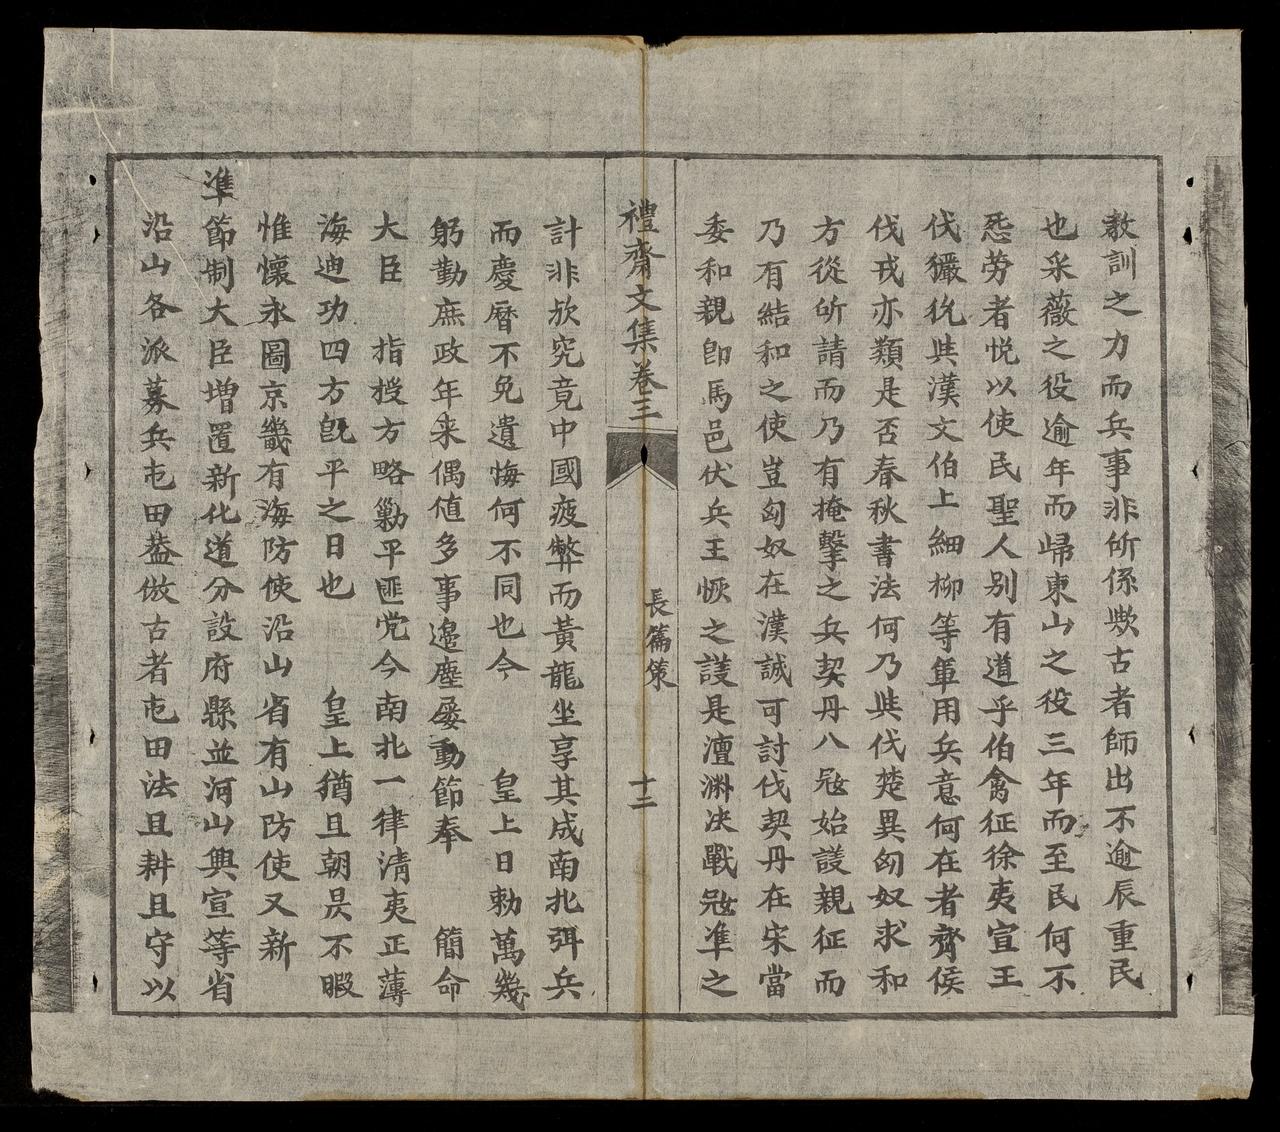 教訓之力而兵事非所係歟古者師出不逾辰重民
也采薇之役逾年而歸東山之役三年而至民何不
怨劳者悦以使民聖人别有道乎伯禽征徐夷宣王
伐玁狁與漢文伯上細柳等軍用兵意何在者齊侯
伐戎亦類是否春秋書法何乃與伐楚異匈奴求和
方從所請而乃有掩擊之兵契丹入寇始議親征而
乃有結和之使豈匈奴在漢誠可討伐契丹在宋當
委和親卽馬邑伏兵王恢之議是澶渊决戰寇準之
禮齋文集卷三
長篇策
十二
計非欤究竟中國疲弊而黃龍坐享其成南北弭兵
而慶曆不免遺悔何不同也今 皇上日勅萬幾
躬勤庶政年来偶値多事邉塵屡動節奉 簡命
大臣 指授方略勦平匪党今南北一律清夷正薄
海迪功四方旣平之日也 皇上猶且朝昃不暇
惟懷永圖京畿有海防使沿山省有山防使又新
準節制大臣增置新化道分設府縣並河山興宣等省
沿山各派募兵屯田葢倣古者屯田法且耕且守以